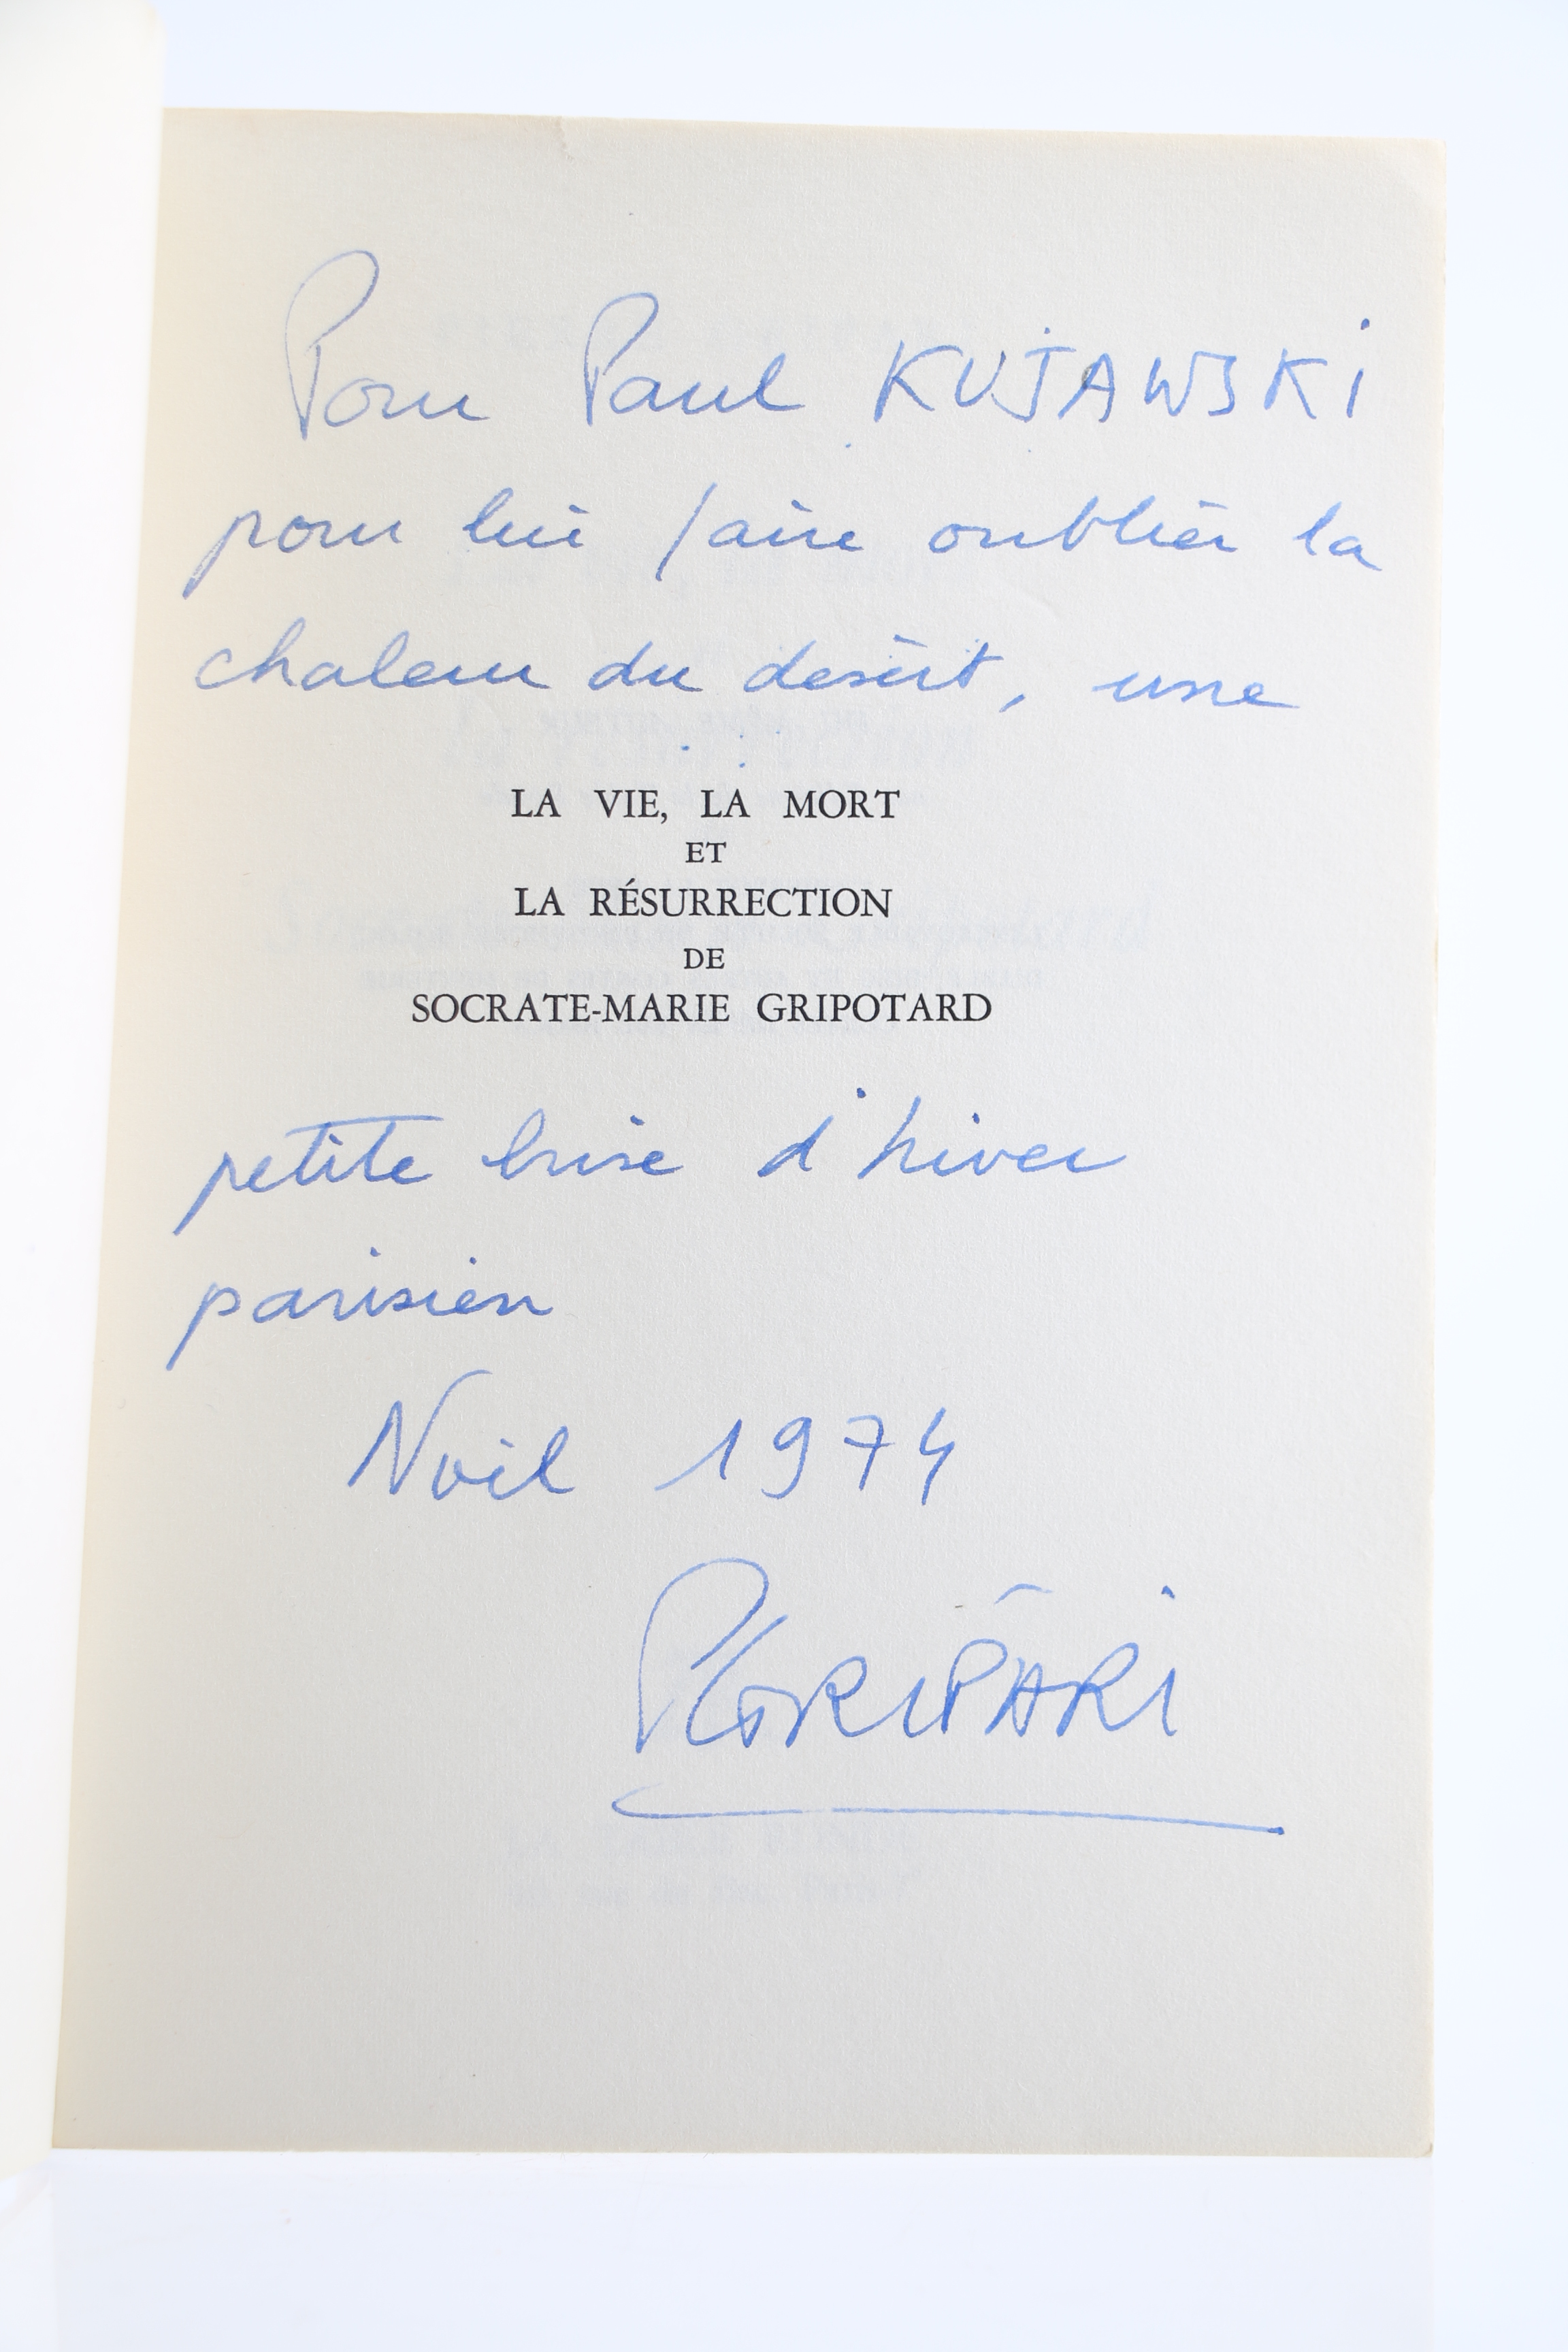 Pour Paul KUJAWSKI
pour lui faire oublier la
chaleur du désert, une
LA VIE, LA MORT
ET
LA RÉSURRECTION
DE
SOCRATE-MARIE GRIPOTARD
petite brise d'hiver
parisien
Noël 1974
PGRIPARI